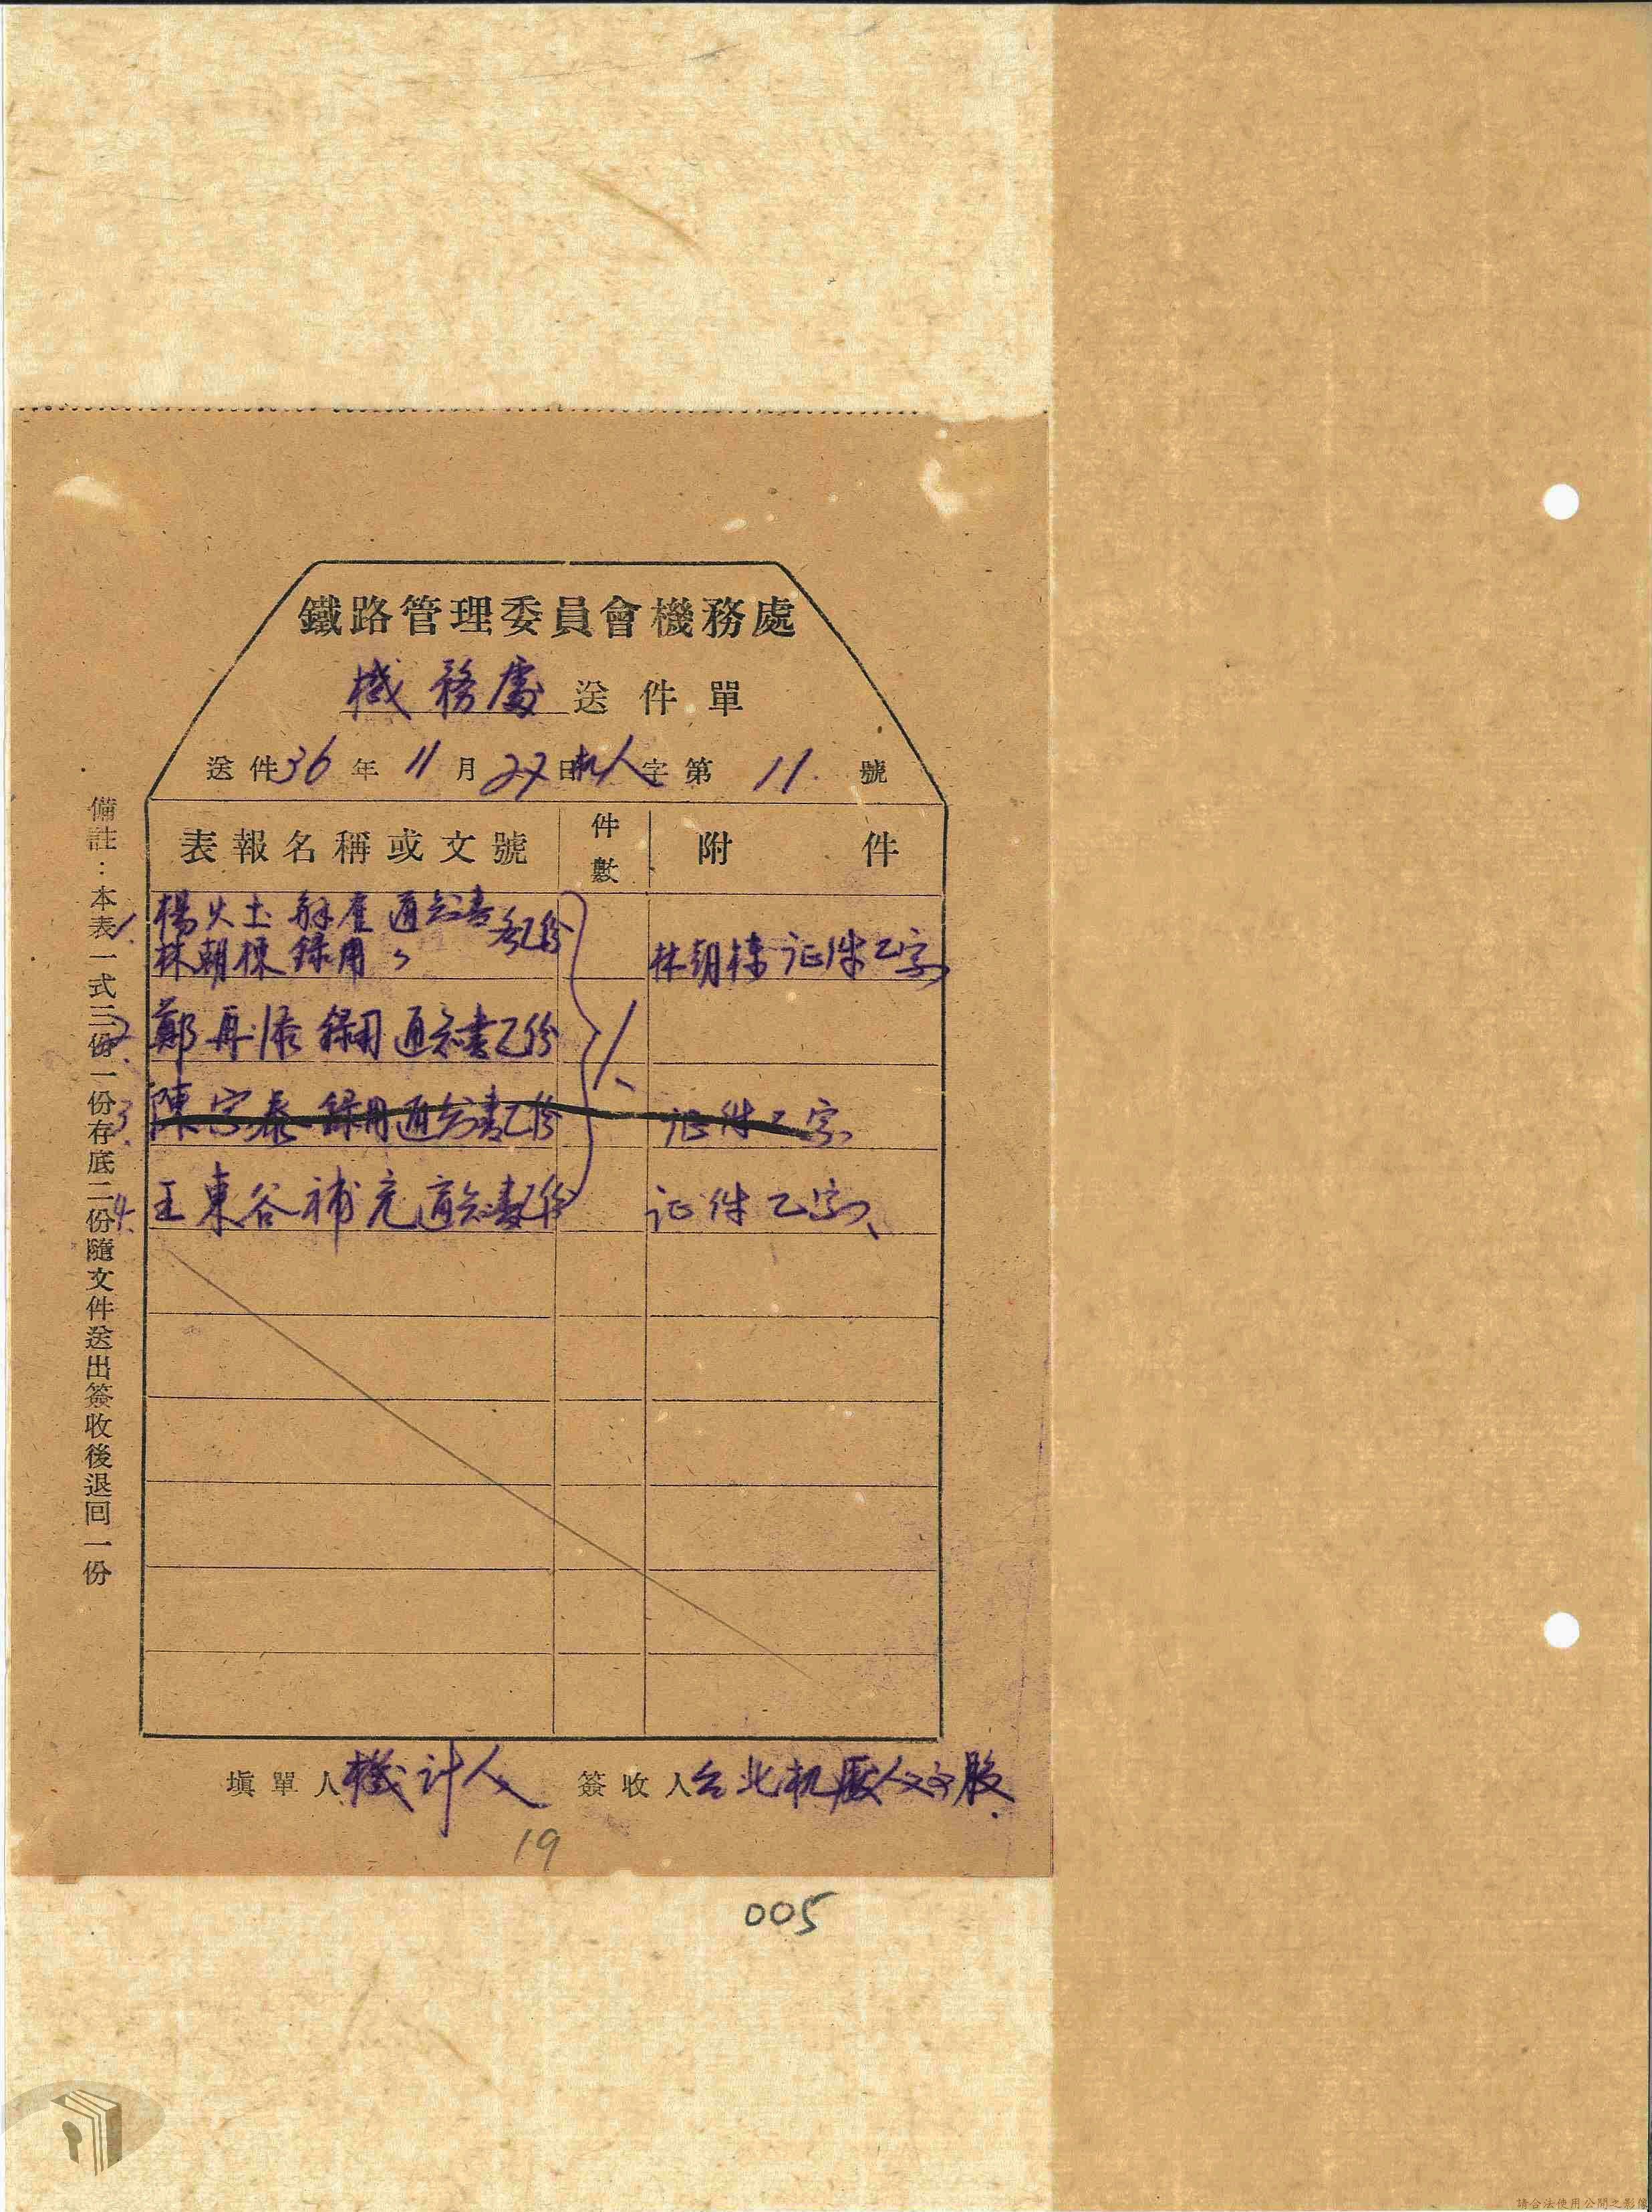 鐵路管理委員會機務處
機務處送件單
送件36年11月27日机人字第11.號
表報名稱或文號 件數 附件
1. 楊火土解雇通知書 各乙份
林朝棟錄用〃 林朝棟证件乙字、
2. 鄭再添錄用通知書乙份
3. 陳宗泰錄用通知書乙份 证件乙字、
4. 王東谷補充通知書乙份 证件乙字、
1、
填單人機計人 簽收人台北机廠人文股.
備註：本表一式三份一份存底二份隨文件送出簽收後退回一份
19
005
請合法使用公開之影像